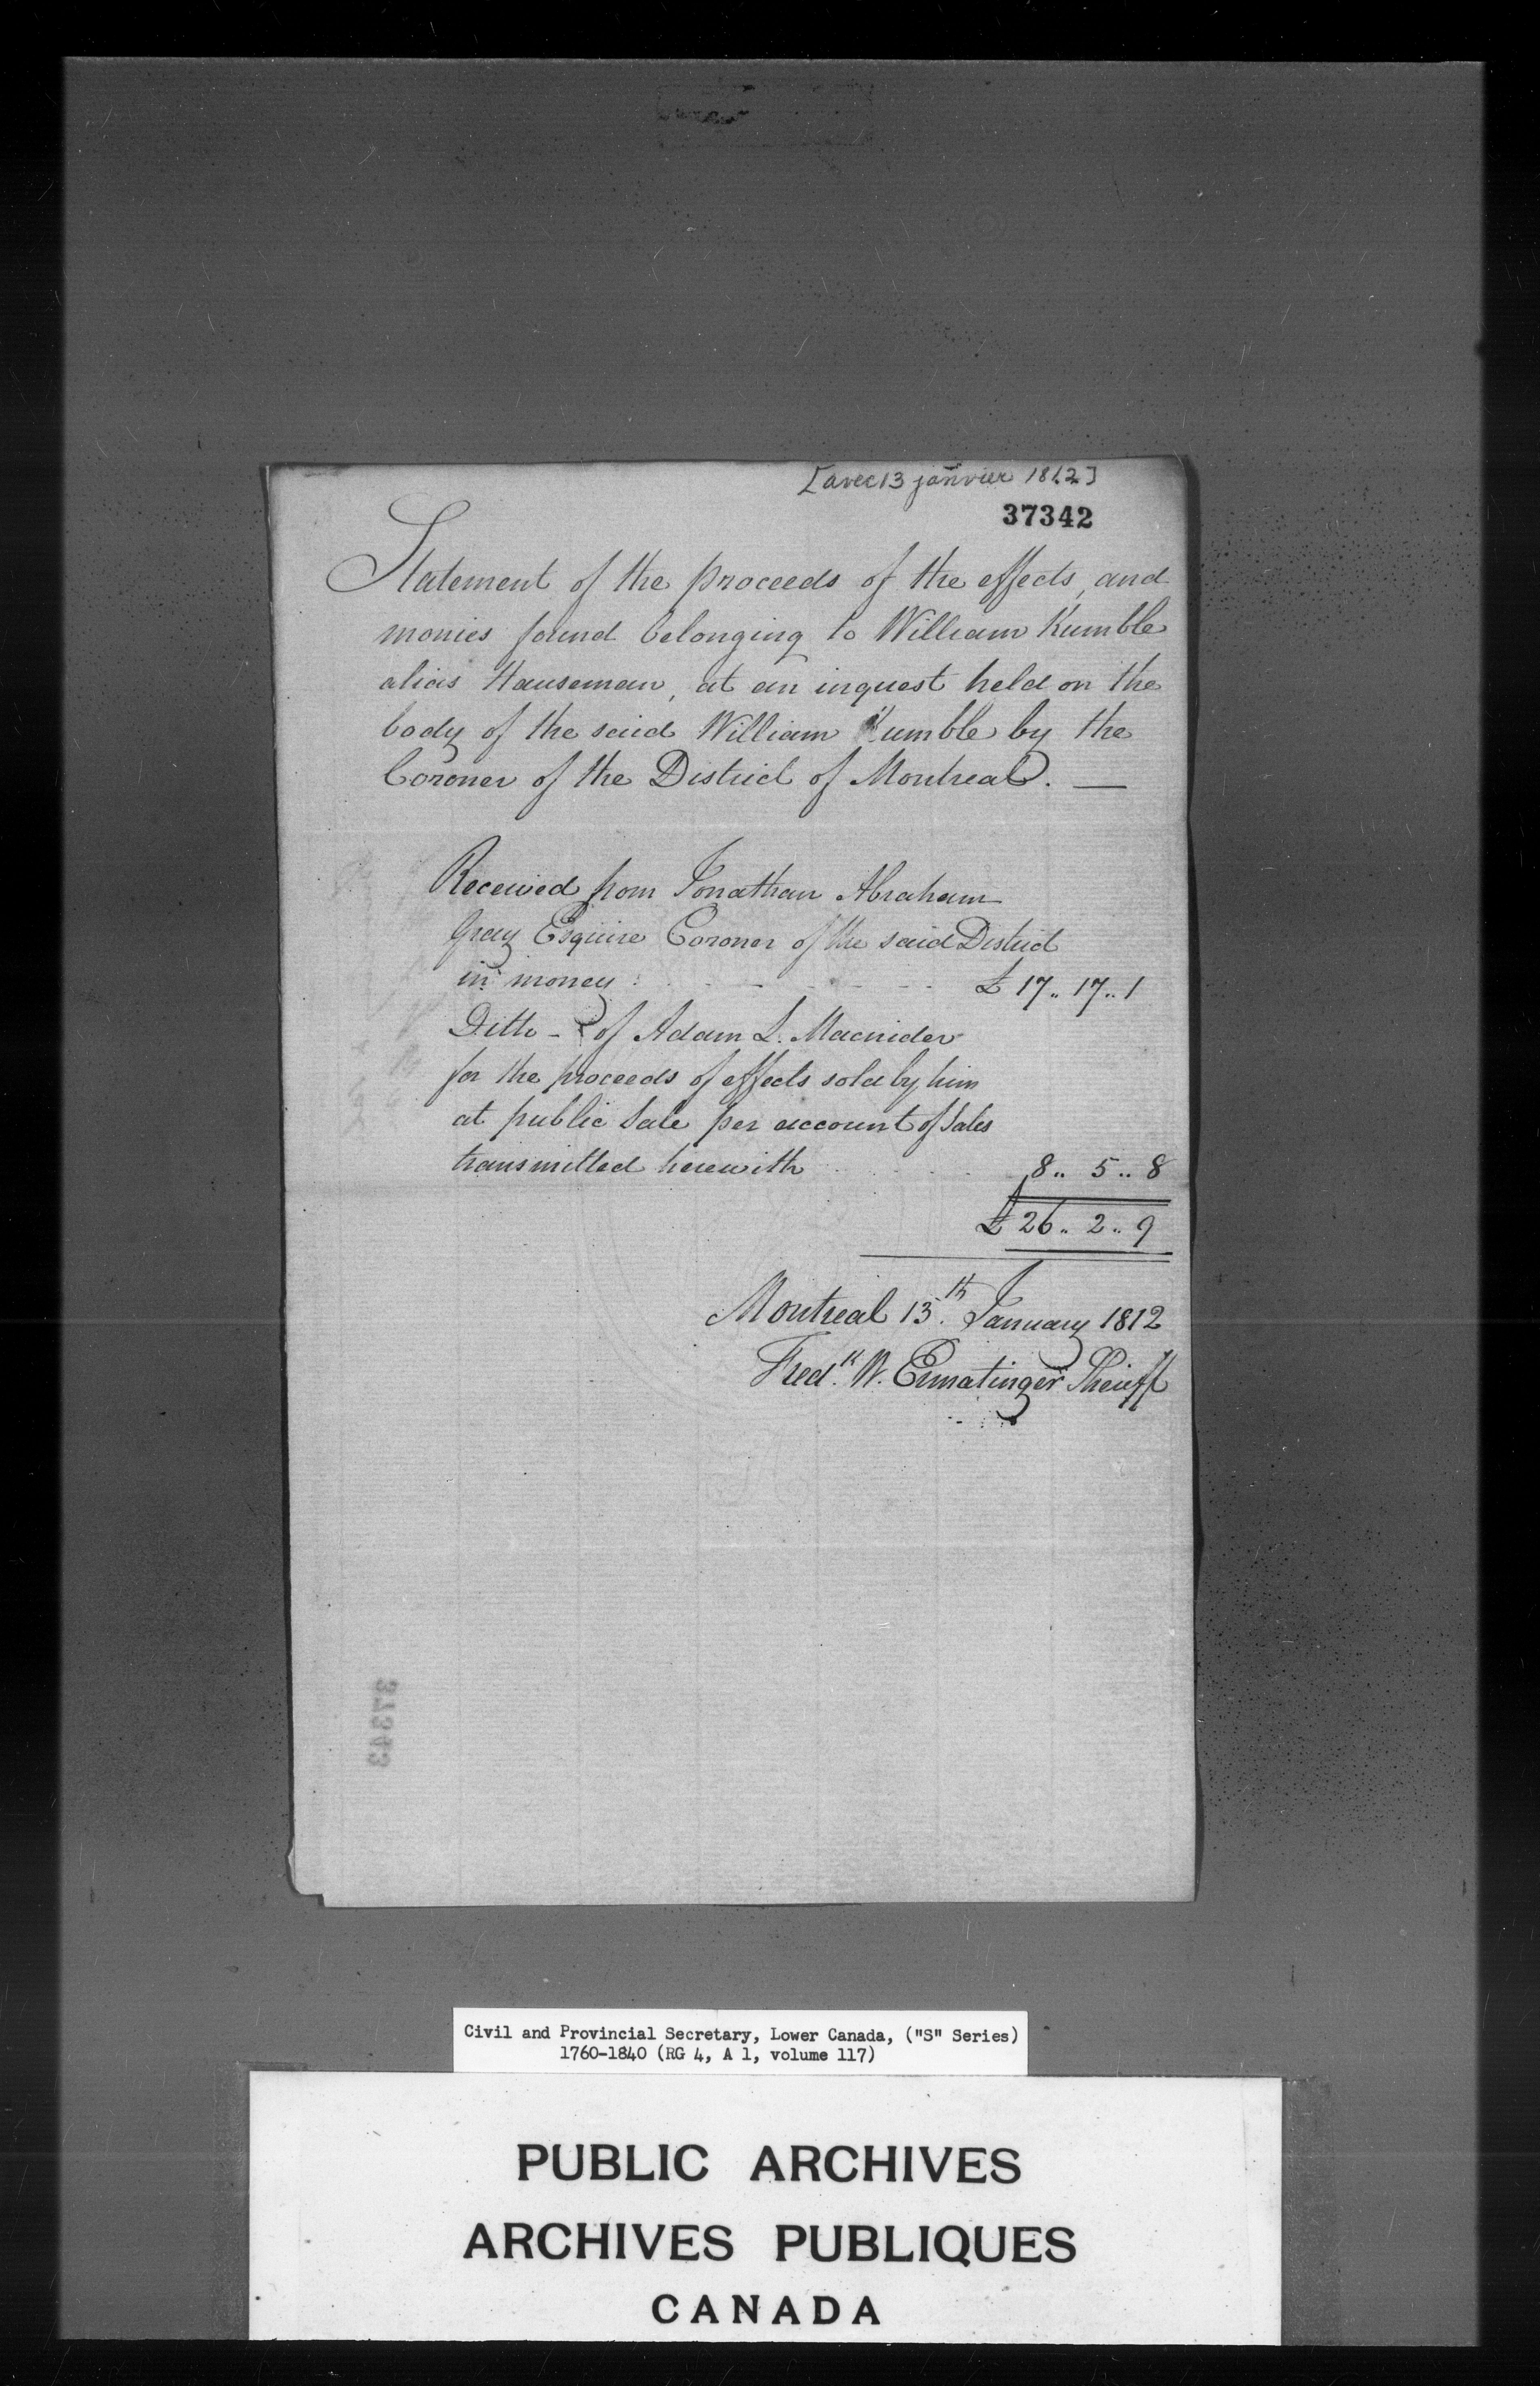 [avec 13 janvier 1812]
37342
Statement of the proceeds of the effects, and
monies found belonging to William Kumble
alias Hauseman, at an inquest held on the
body of the said William Kumble by the
Coroner of the District of Montreal. —
Received from Jonathan Abraham
Gray Esquire Coroner of the said District
in money : - - - - £ 17.. 17.. 1
Ditto - of Adam L. Macnider
for the proceeds of effects sold by him
at public Sale per account of Sales
transmitted herewith 8.. 5.. 8
£ 26.. 2.. 9
Montreal 13.th January 1812
Fred.k W. Ermatinger Sheriff
37343
Civil and Provincial Secretary, Lower Canada, ("S" Series)
1760-1840 (RG 4, A 1, volume 117)
PUBLIC ARCHIVES
ARCHIVES PUBLIQUES
CANADA